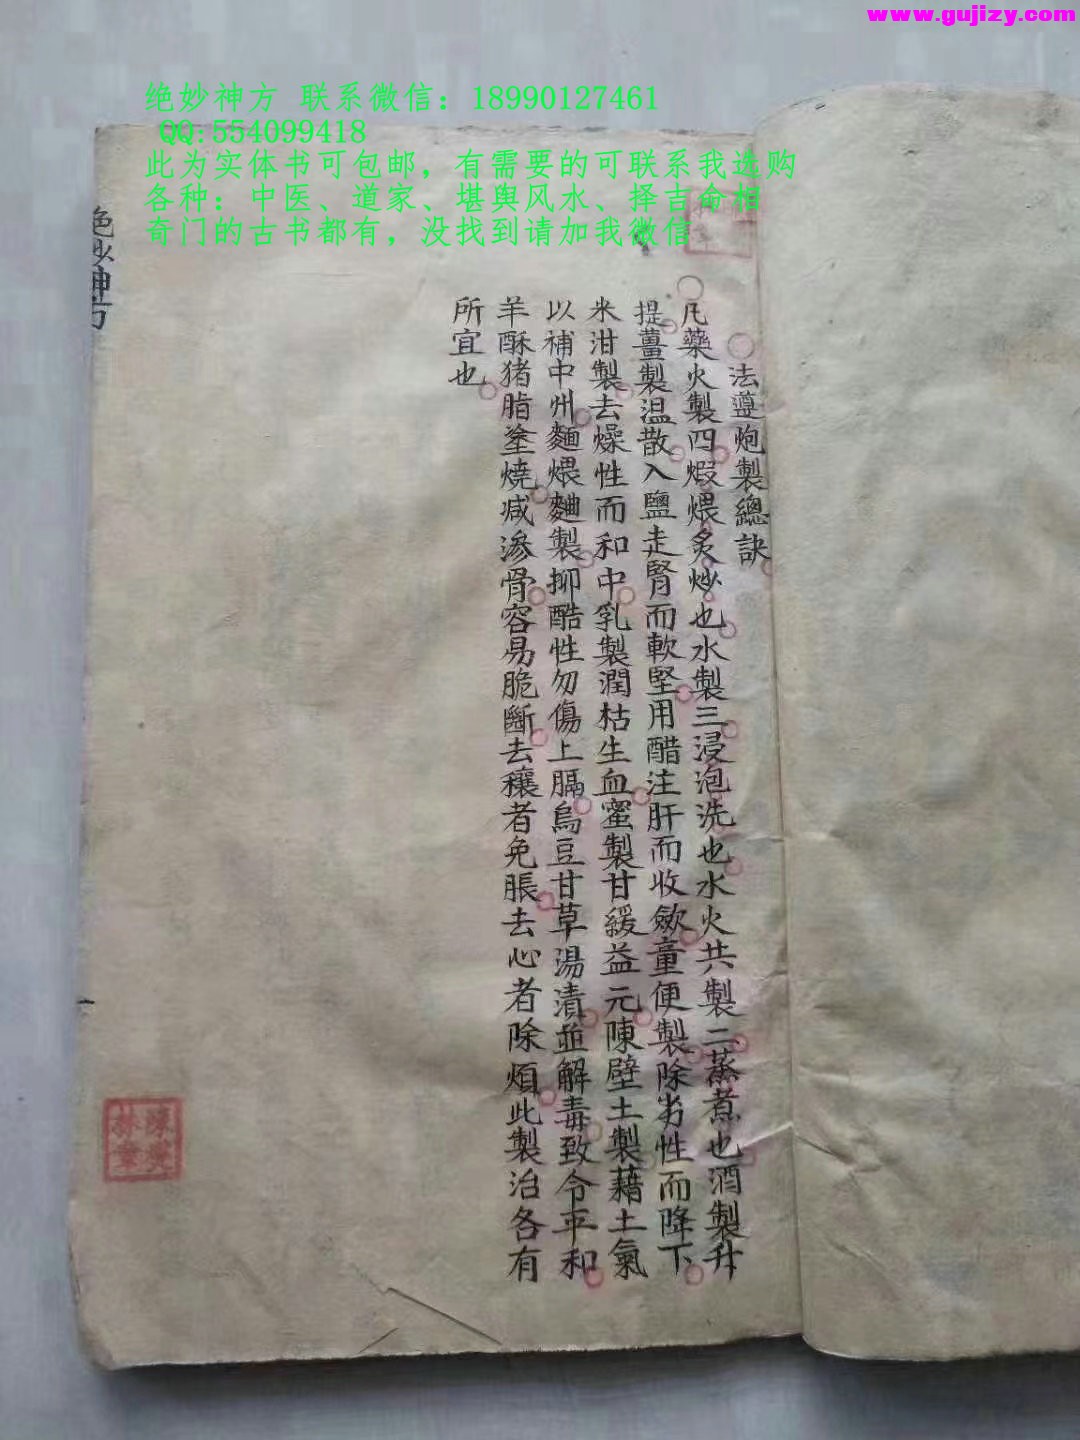 www.gujizy.com
绝妙神方 联系微信：18990127461
QQ:554099418
此为实体书可包邮，有需要的可联系我选购
各种：中医、道家、堪舆风水、择吉命相
奇门的古书都有，没找到请加我微信
絶妙神方
○法遵炮製總訣
○凡藥火製四煆煨炙炒也水製三浸泡洗也水火共製二蒸煮也酒製升
提薑製温散入鹽走腎而軟堅用醋注肝而收歛童便製除劣性而降下
米泔製去燥性而和中乳製潤枯生血蜜製甘緩益元陳壁土製藉土氣
以補中州麵煨麯製抑酷性勿傷上膈烏豆甘草湯漬並解毒致令平和
羊酥猪脂塗燒咸滲骨容易脆斷去穰者免脹去心者除煩此製治各有
所宜也